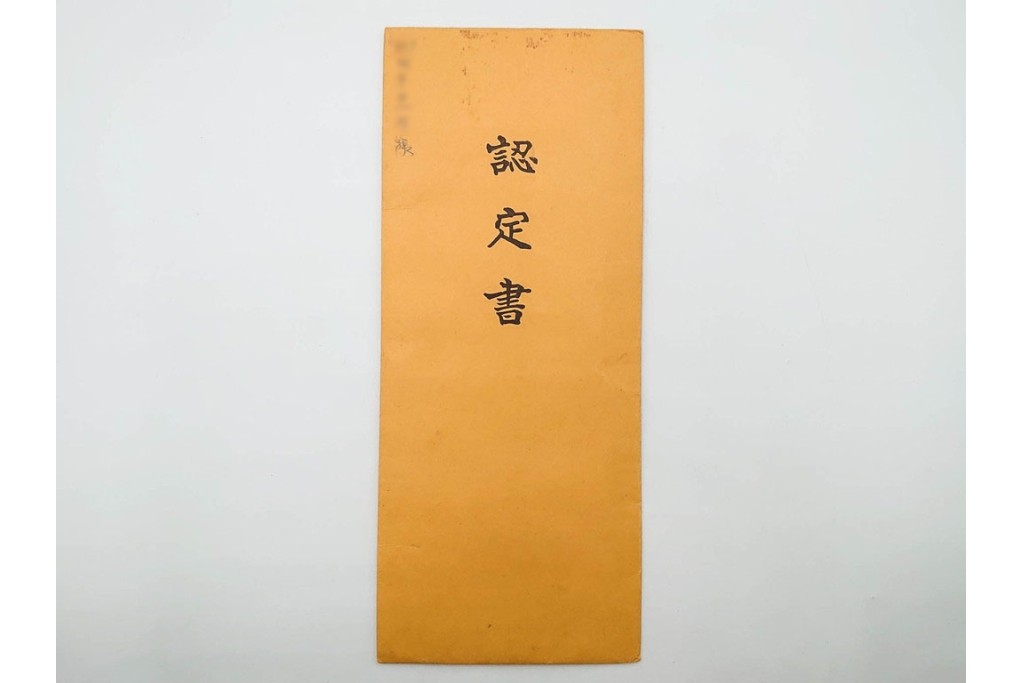 認定書
様